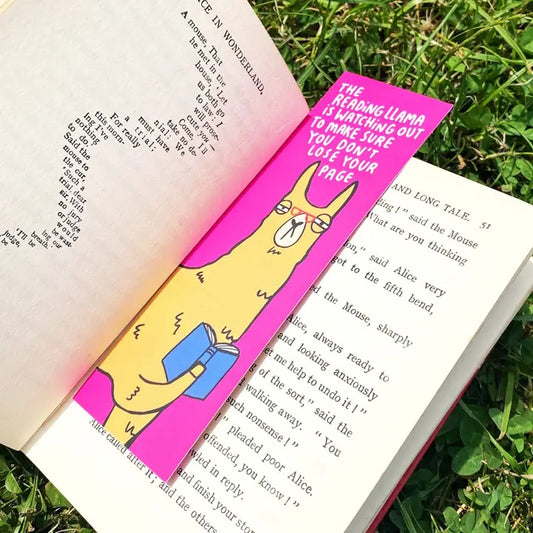 ICE IN WONDERLAND.
A
mouse, That
he met in the
house, 'Let
us both go
to law: I
will prose-
cute you.—
Come, I'll
take no de-
nial: We
must have
a trial;
For really
this morn-
ing I've
nothing
to do.'
Said the
mouse to
'Such a
trial, dear
sir, With
no jury
or judge,
would
be wast-
ing our
breath.'
'I'll be
judge,
THE
READING LLAMA
IS WATCHING OUT
TO MAKE SURE
YOU DON'T
LOSE YOUR
PAGE
AND LONG TALE. 51
ding!" said the Mouse
What are you thinking
don," said Alice very
got to the fifth bend,
ed the Mouse, sharply
Alice, always ready to
and looking anxiously
let me help to undo it!"
ing of the sort," said the
walking away. "You
such nonsense!"
pleaded poor Alice.
offended, you know!"
wled in reply.
and finish your story
Alice called after it;
and the others